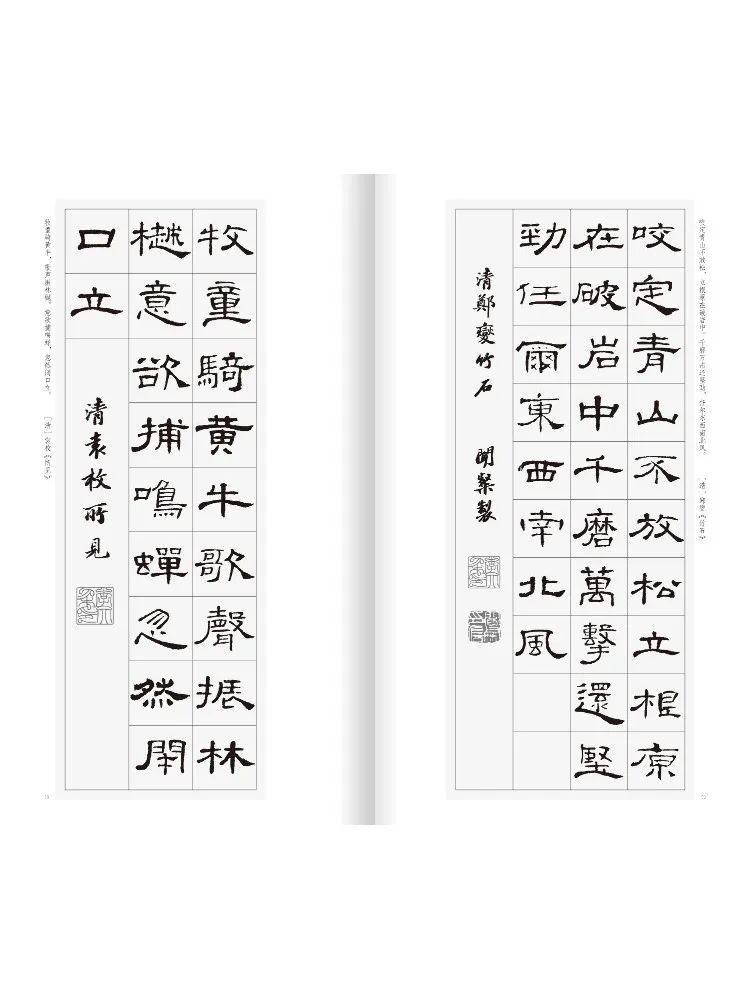 咬定青山不放松，立根原在破岩中。千磨万击还坚劲，任尔东西南北风。 〔清〕郑燮《竹石》
咬定青山不放松立根原
在破岩中千磨萬擊還堅
勁任爾東西南北風
清鄭燮竹石 聞製
牧童騎黄牛歌聲振林
樾意欲捕鳴蟬忽然閉
口立
清袁枚所見
牧童骑黄牛，歌声振林樾。意欲捕鸣蝉，忽然闭口立。 〔清〕袁枚《所见》